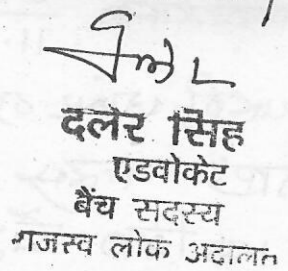 दलेर सिंह
एडवोकेट
बैंच सदस्य
राजस्व लोक अदालत